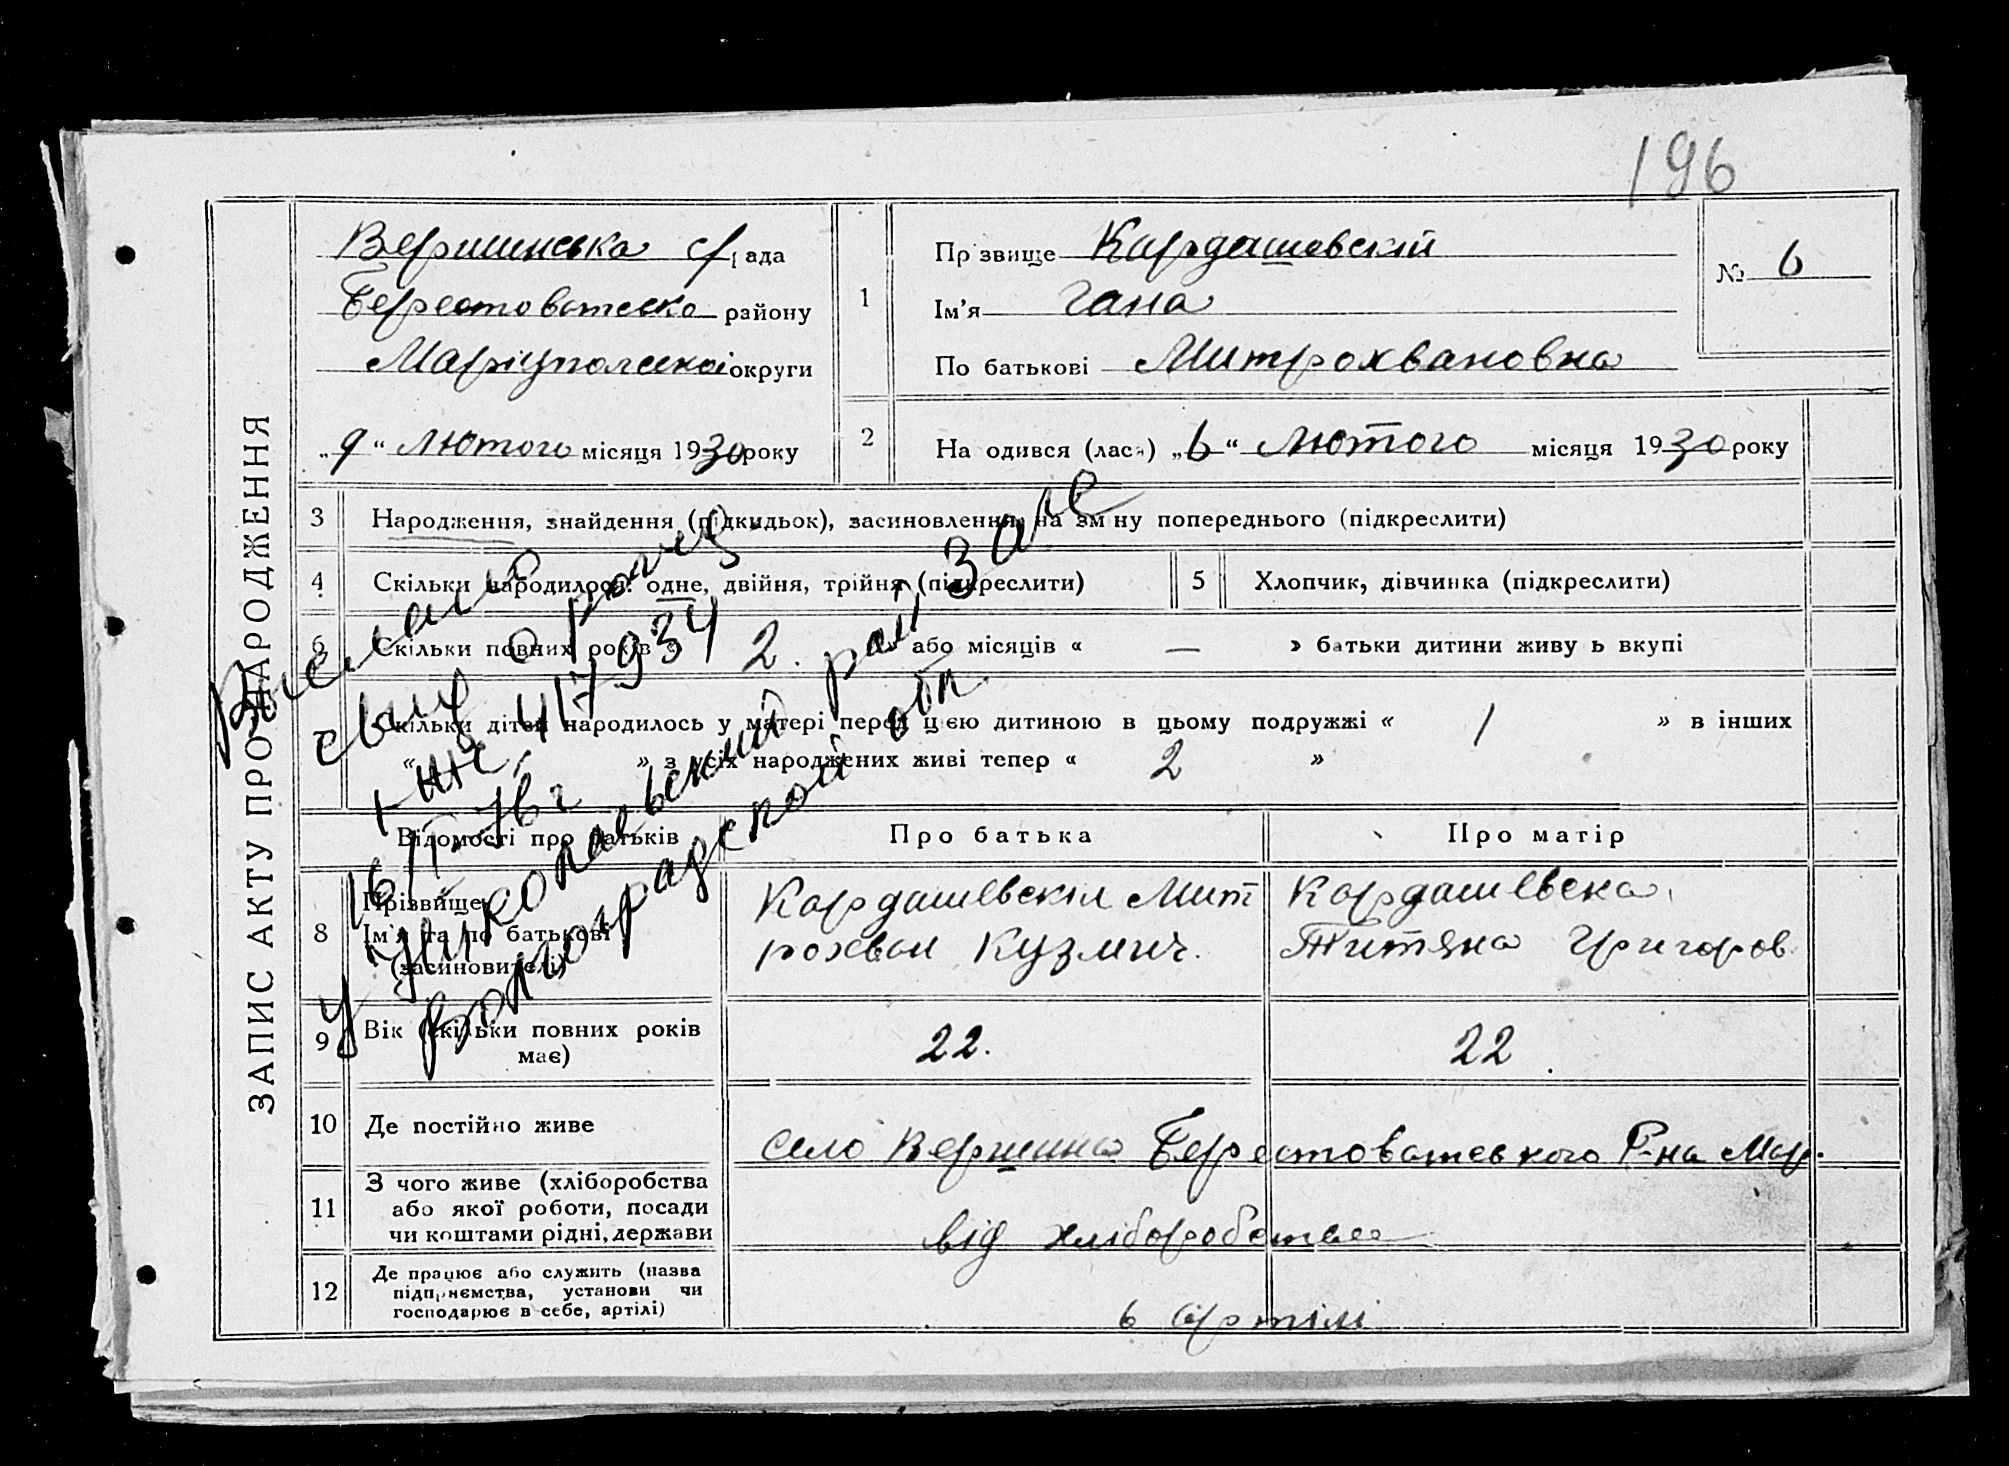 196
ЗАПИС АКТУ ПРО НАРОДЖЕННЯ
Вершинська с/рада
Берестоватсько району
Маріупольскоі округи
„9“ лютого місяця 1930 року
1
Прізвище Кардашевскій
Ім’я Гана
По батькові Митрохвановна
№ 6
2
На одився (лась) „6“ лютого місяця 1930 року
3 Народження, знайдення (підкидьок), засиновлення, на зміну попереднього (підкреслити)
4 Скільки народилося: одне, двійня, трійня (підкреслити)
5 Хлопчик, дівчинка (підкреслити)
6 Скільки повних років « 2. або місяців « — » батьки дитини живуть вкупі
7 Скільки дітей народилось у матері перед цією дитиною в цьому подружжі « 1 » в інших
« » з усіх народжених живі тепер « 2 »
Відомості про батьків
Про батька
Про матір
8 Прізвище,
Ім’я та по батькові
(засиновителі)
Кардашевскій Мит
рохван Кузмич.
Кардашевска
Титяна Григоров.
9 Вік (скільки повних років
має)
22.
22
10 Де постійно живе
село Вершина Берестоватевкого Р-на Мар.
11 З чого живе (хліборобства
або якої роботи, посади
чи коштами рідні, держави
від хліборобства
12 Де працює або служить (назва
підприємства, установи чи
господарює в себе, артілі)
в артілі
Выслано
свид о рожд
І-ЖД 417934
16/ІІ-76г
у Николаевский рай Загс
Волгоградской обл.